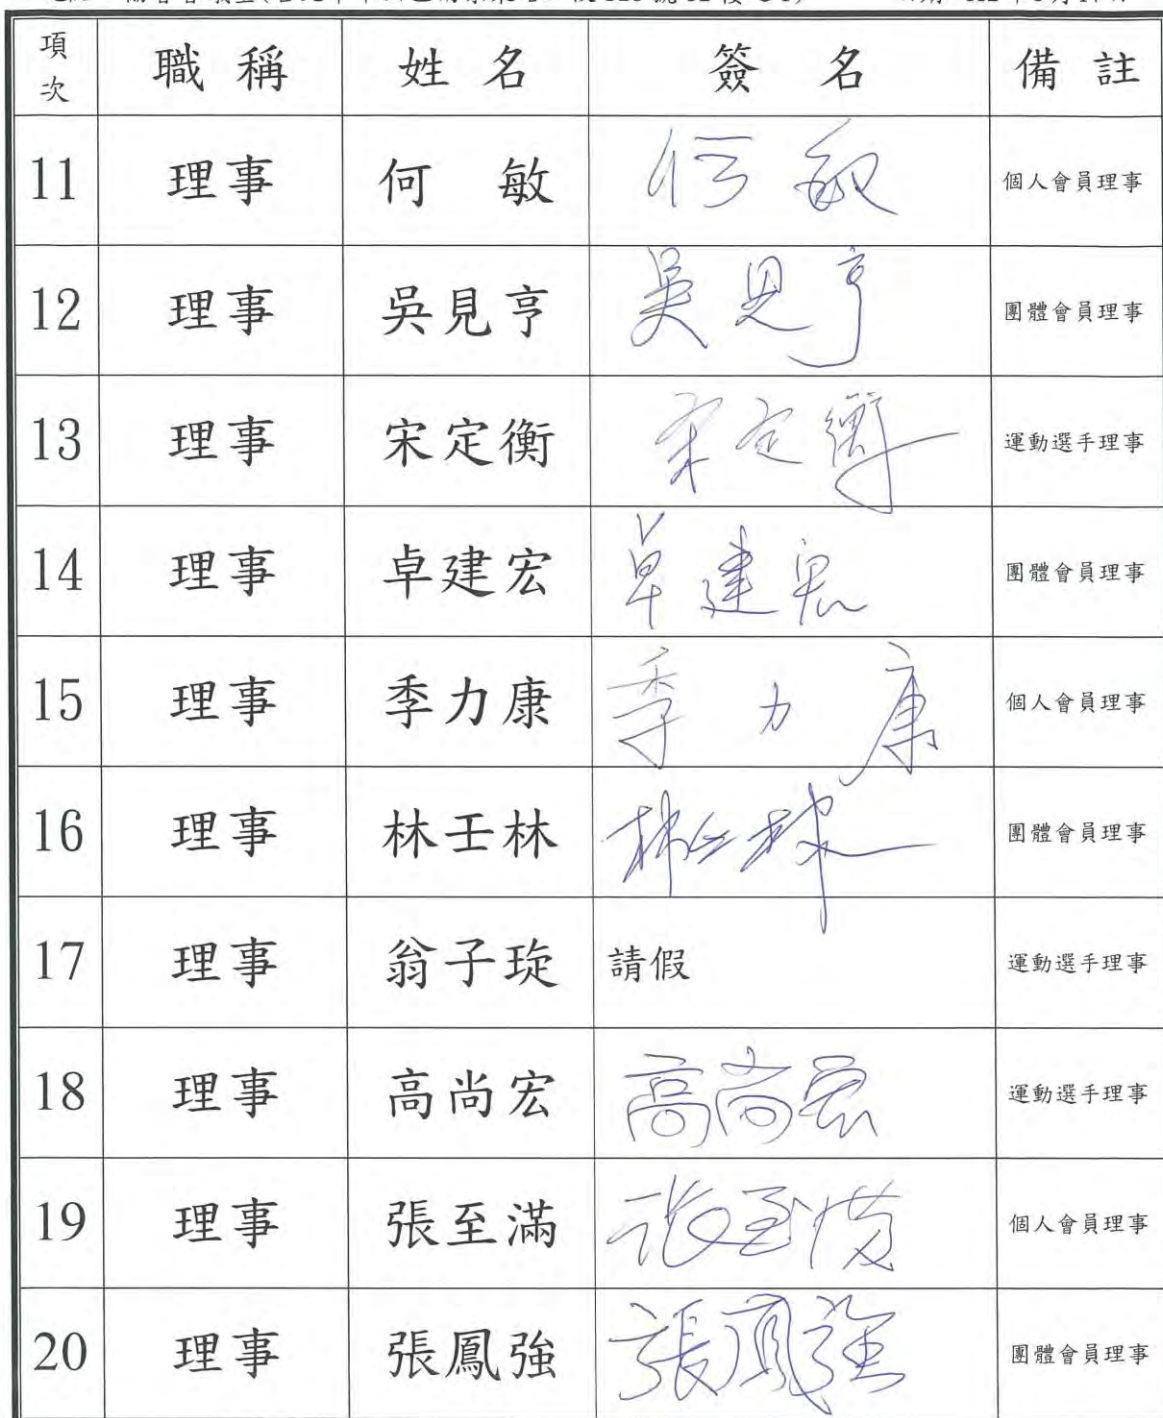 項次 職稱 姓名 簽名 備註
11 理事 何 敏 何敏 個人會員理事
12 理事 吳見亨 吳見亨 團體會員理事
13 理事 宋定衡 宋定衡 運動選手理事
14 理事 卓建宏 卓建宏 團體會員理事
15 理事 季力康 季力康 個人會員理事
16 理事 林壬林 林壬林 團體會員理事
17 理事 翁子琁 請假 運動選手理事
18 理事 高尚宏 高尚宏 運動選手理事
19 理事 張至滿 張至滿 個人會員理事
20 理事 張鳳強 張鳳強 團體會員理事